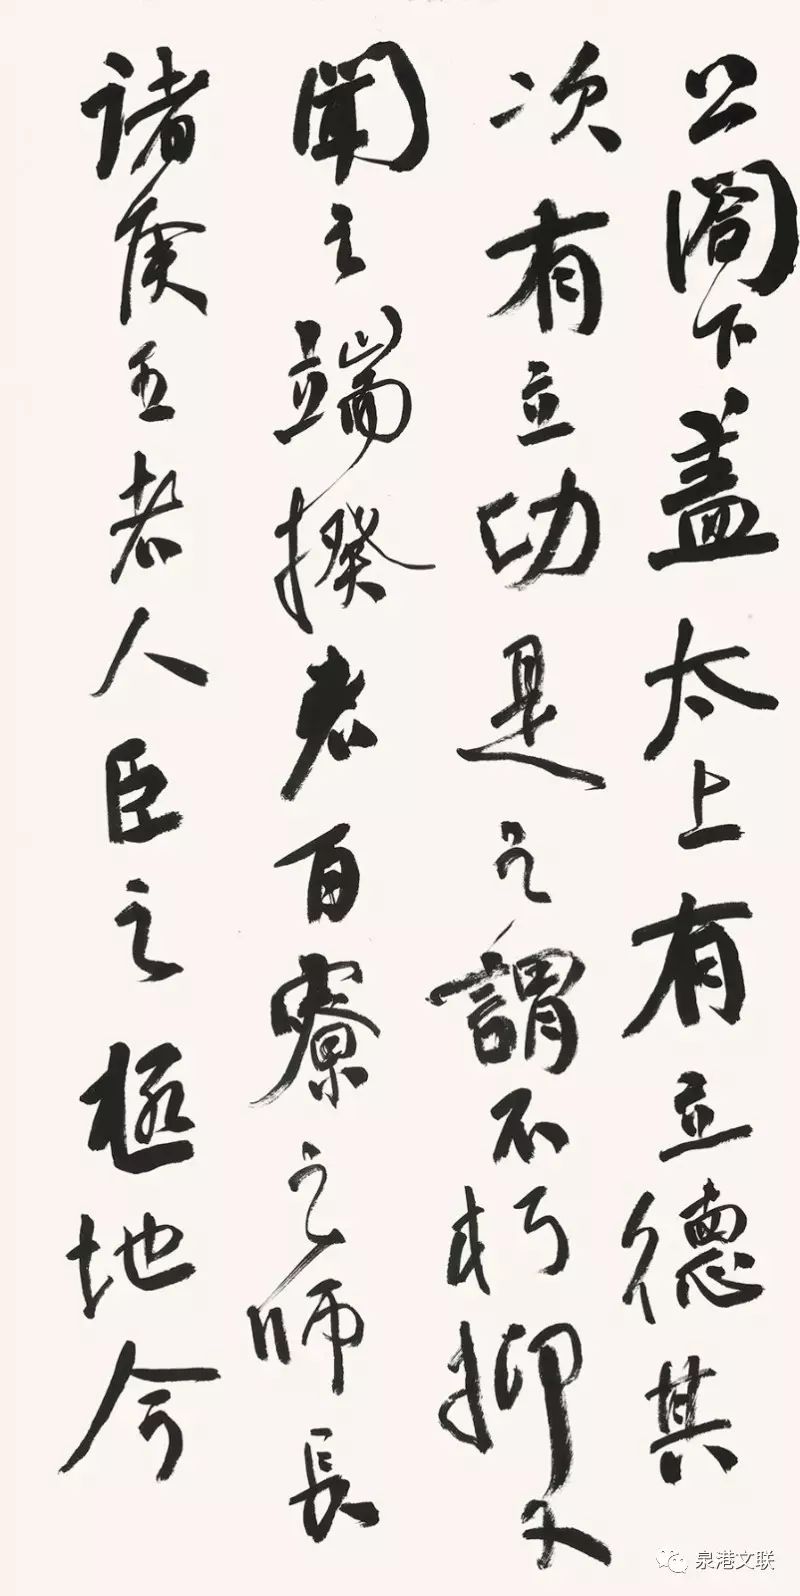 公閤下盖太上有立德其
次有立功是之謂不朽抑又
聞之端揆者百寮之師長
諸矦王者人臣之極地今
泉港文联